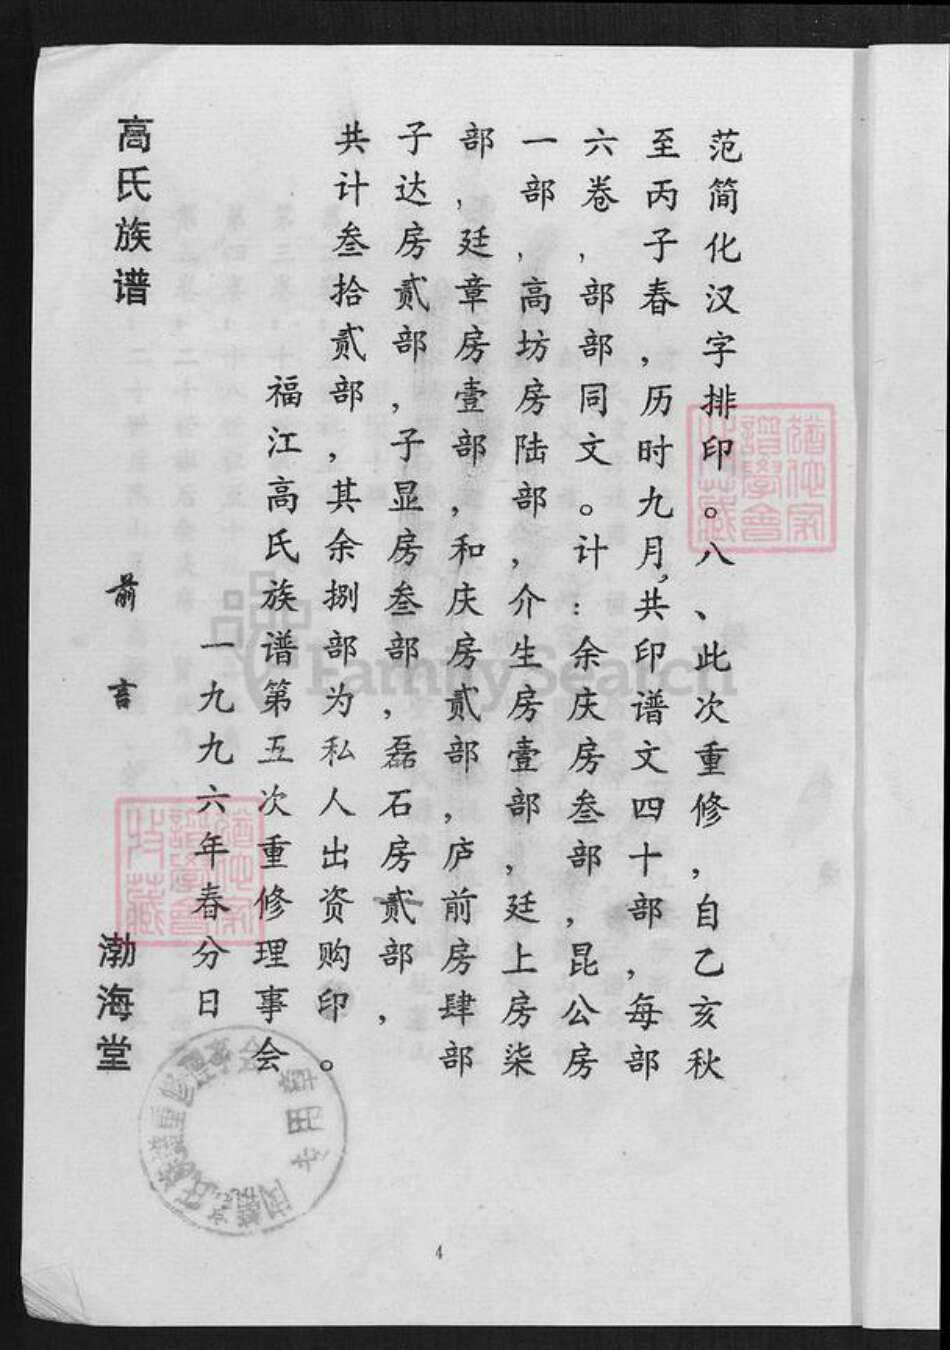 范简化汉字排印。八、此次重修，自乙亥秋
至丙子春，历时九月，共印谱文四十部，每部
六卷，部部同文。计：余庆房叁部，昆公房
一部，高坊房陆部，介生房壹部，廷上房柒
部，廷章房壹部，和庆房贰部，庐前房肆部
子达房贰部，子显房叁部，磊石房贰部，
共计叁拾贰部，其余捌部为私人出资购印。
福江高氏族谱第五次重修理事会
一九九六年春分日
高氏族谱
前言
渤海堂
4
FamilySearch